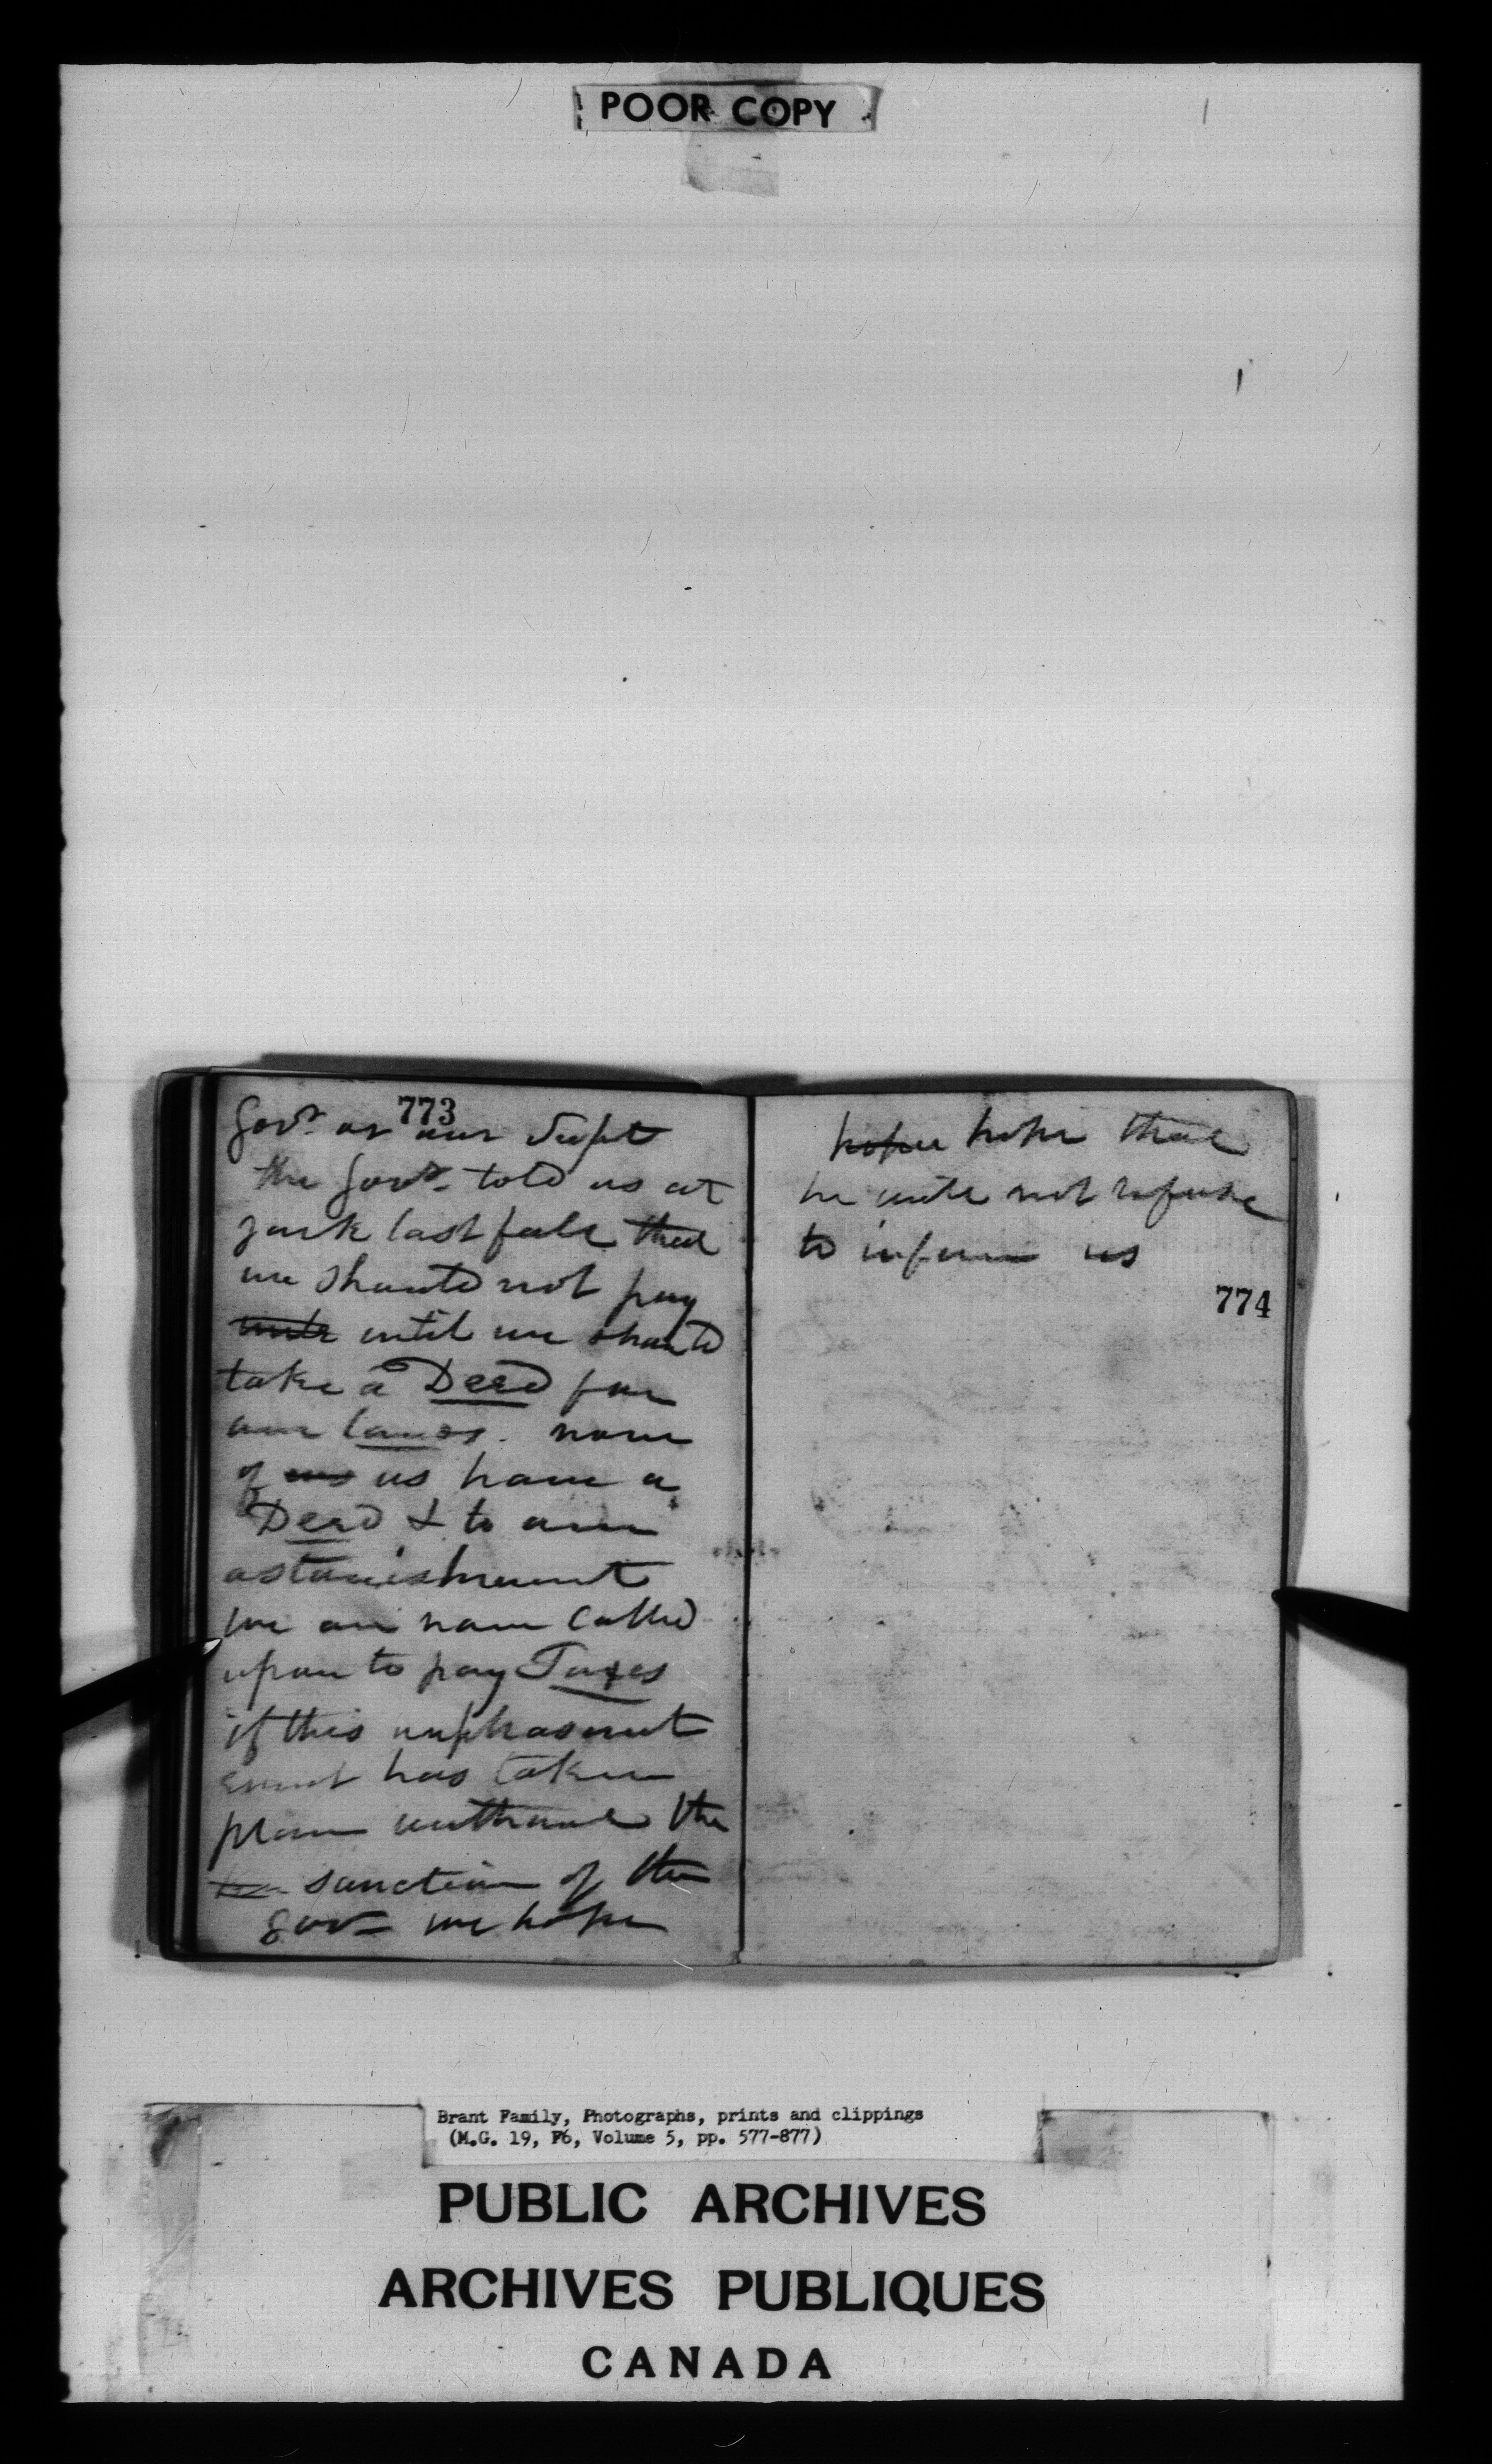 POOR COPY
773
Govr. or our Supt
the Govr. told us at
york last fall that
we should not pay
until we should
take a Deed for
our lands. none
of us have a
Deed & to our
astonishment
we are now called
upon to pay Taxes
if this unpleasant
event has taken
place without the
sanction of the
govr we hope
hope that
he will not refuse
to inform us
774
Brant Family, Photographs, prints and clippings
(M.G. 19, F6, Volume 5, pp. 577-877)
PUBLIC ARCHIVES
ARCHIVES PUBLIQUES
CANADA